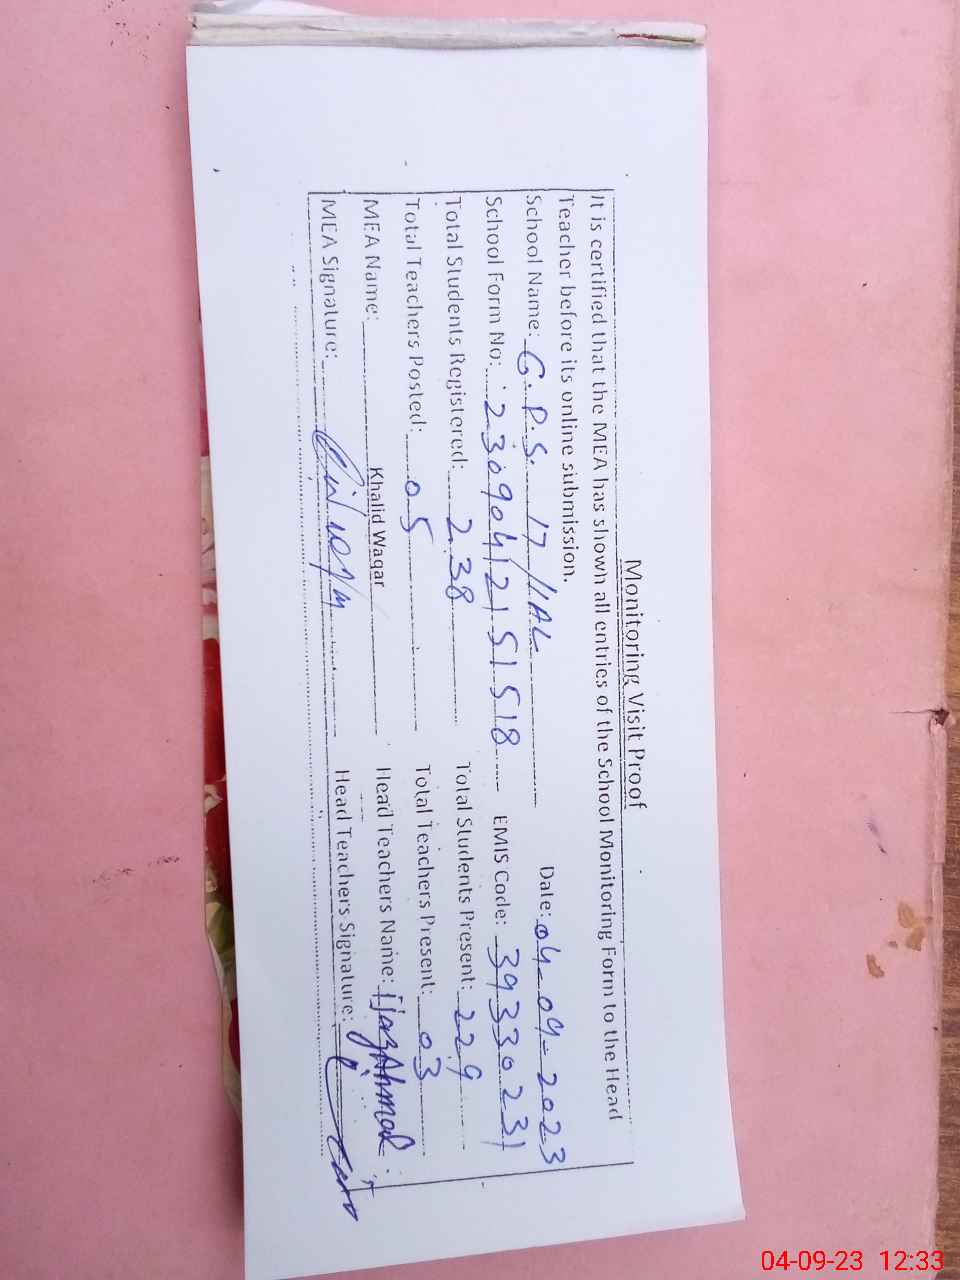 Monitoring Visit Proof
It is certified that the MEA has shown all entries of the School Monitoring Form to the Head
Teacher before its online submission.
School Name: G.P.S. 17/1AL Date: 04-09-2023
School Form No: 23090412151518 EMIS Code: 39330231
Total Students Registered: 238 Total Students Present: 229
Total Teachers Posted: 05 Total Teachers Present: 03
MEA Name: Khalid Waqar Head Teachers Name: Ijaz Ahmad
MEA Signature: Head Teachers Signature:
04-09-23 12:33